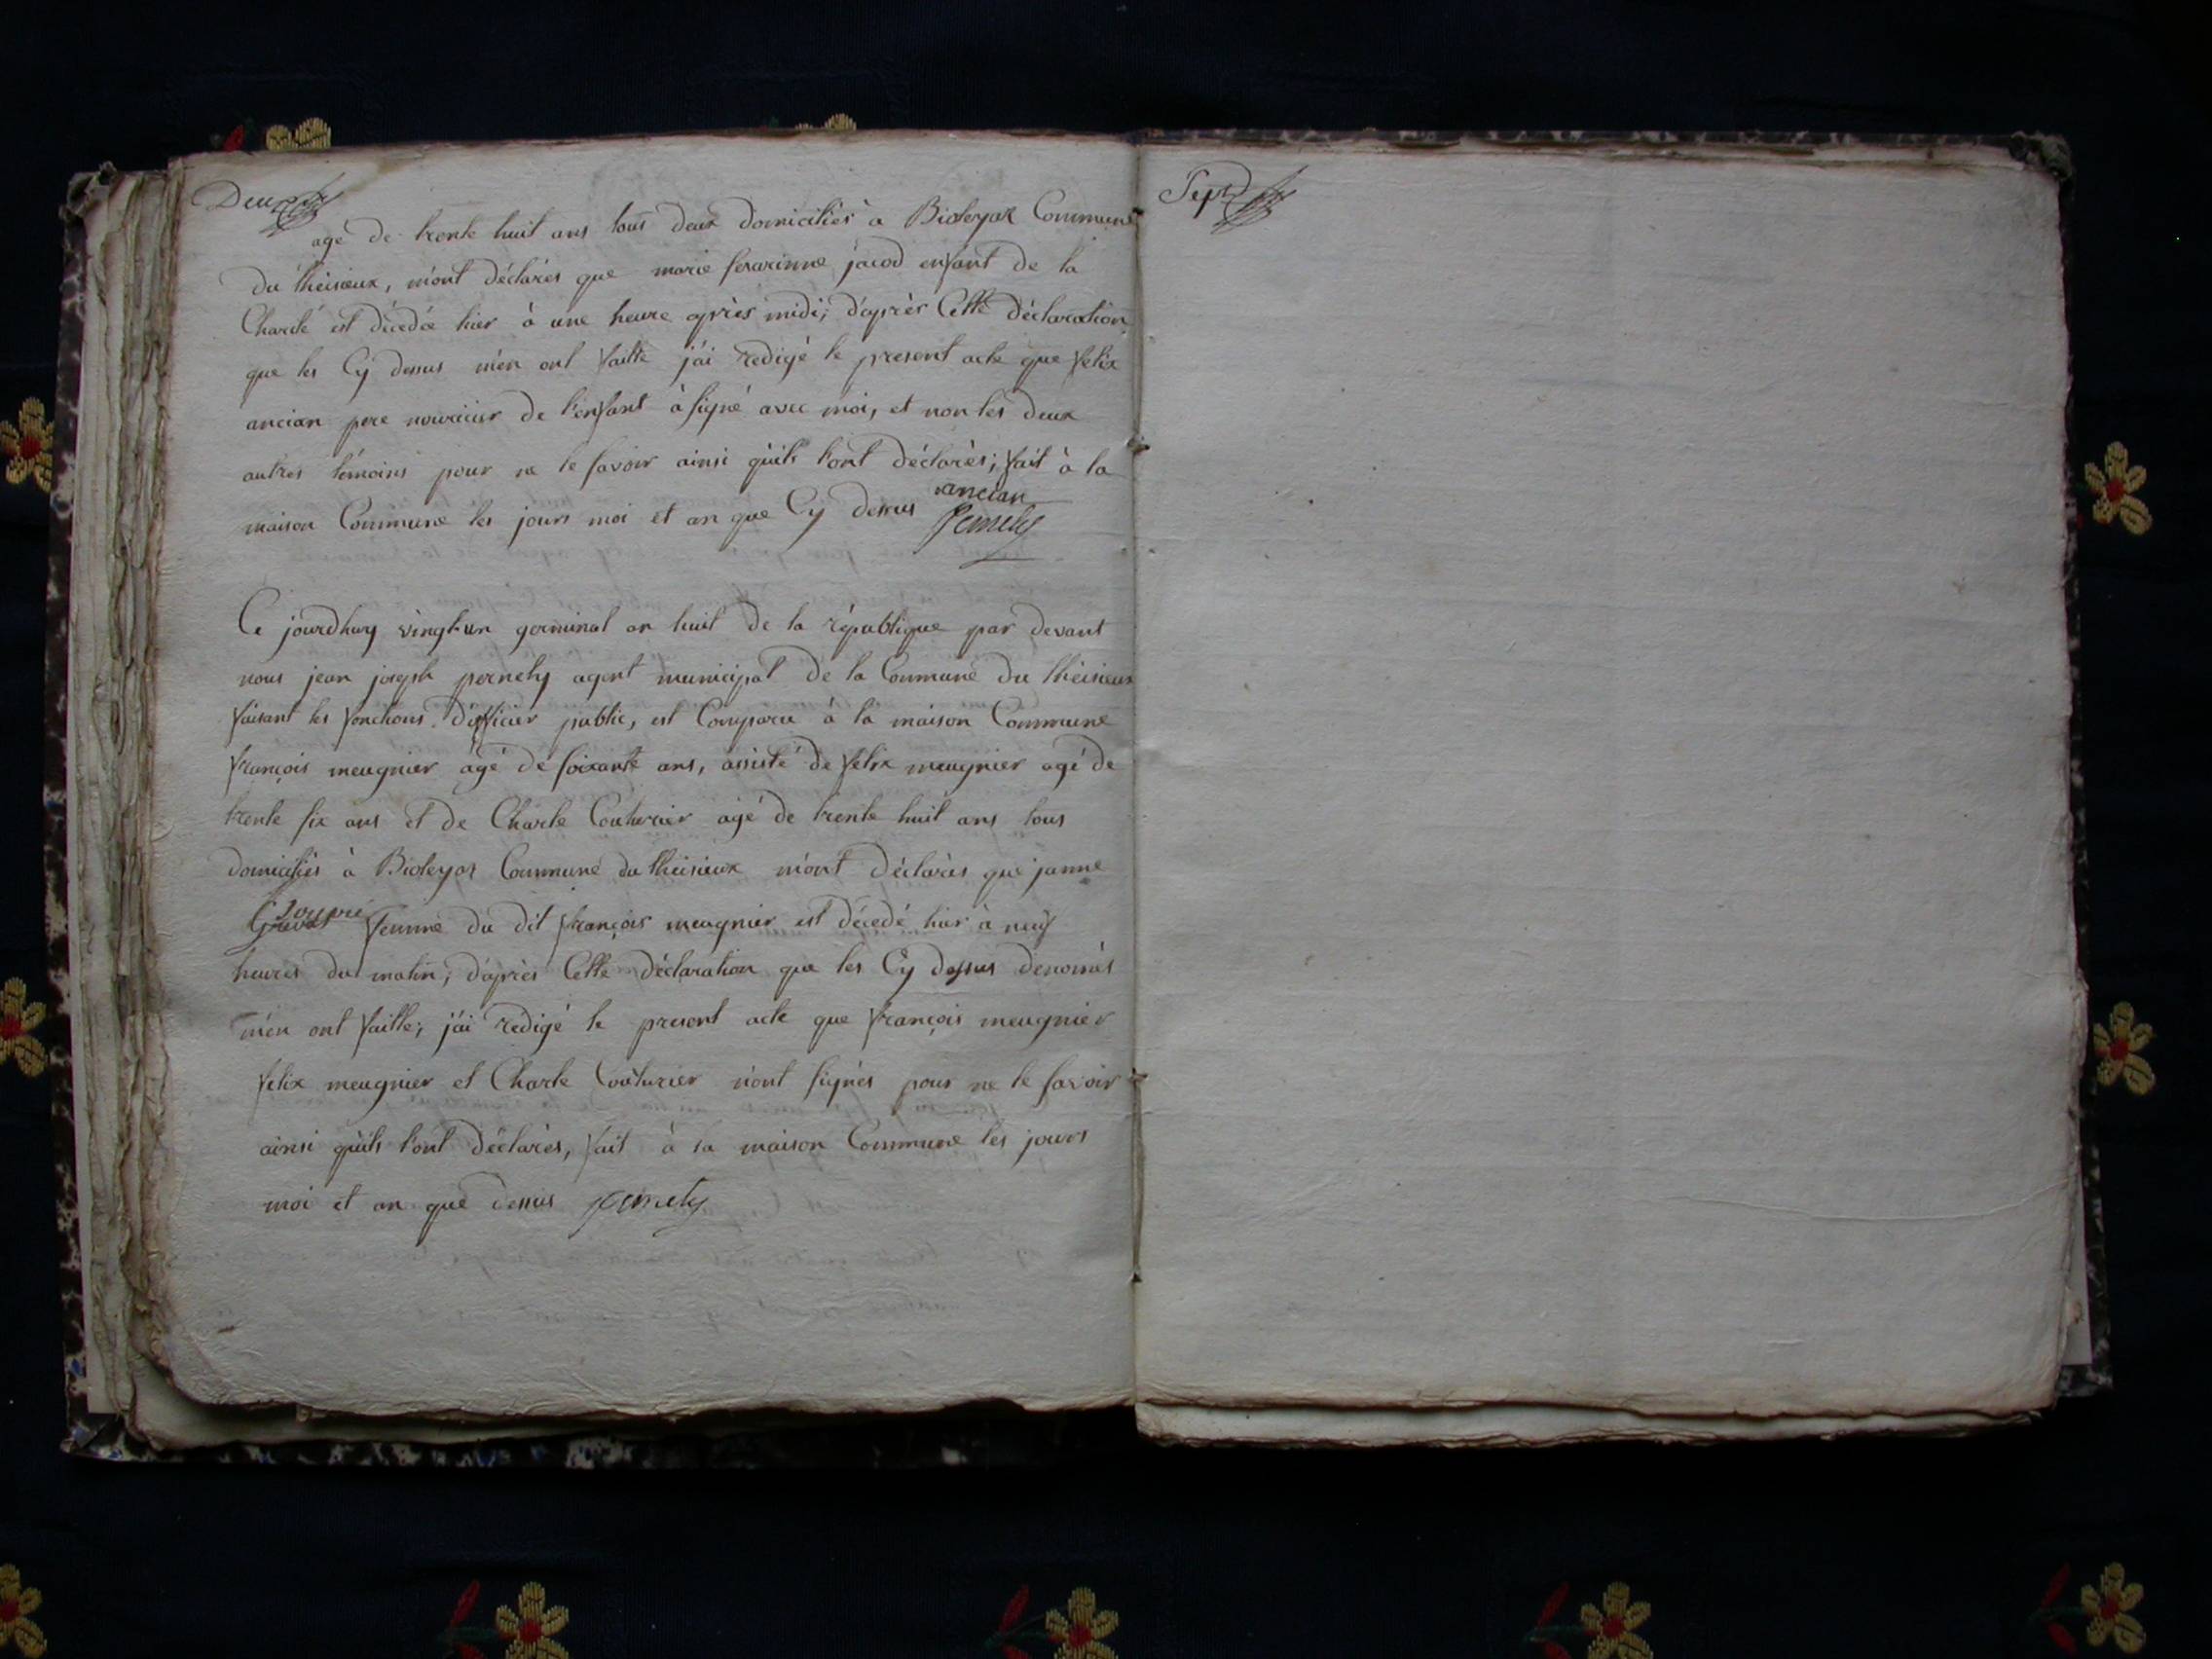 Deux
agé de trente huit ans tous deux domiciliés à Bioleyaz Commune
du théisieux, m'ont déclarés que marie jacod enfant de la
Charité est décédée hier à une heure après midi; d'après Cette déclaration
que les Cy dessus m'en ont faitte j'ai redigé le present acte que felix
ancian pere nouricier de l'enfant à signé avec moi, et non les deux
autres témoins pour ne le savoir ainsi qu'ils l'ont déclarés; fait à la
maison Commune les jours moi et an que Cy dessus ancian
pernety
Ce jourdhuy vingt-un germinal an huit de la république par devant
nous jean joseph pernety agent municipal de la Commune du théisieux
faisant les fonctions d'officier public, est Comparu à la maison Commune
françois meugnier âgé de soixante ans, assisté de felix meugnier agé de
trente six ans et de Charle Couturier agé de trente huit ans tous
domiciliés à Bioleyaz Commune du théisieux m'ont déclarés que janne
femme du dit françois meugnier est décedé hier à neuf
heures du matin; d'après Cette déclaration que les Cy dessus denomés
m'en ont faitte; j'ai redigé le present acte que françois meugnier
felix meugnier et Charle Couturier n'ont signés pour ne le savoir
ainsi qu'ils l'ont déclarés, fait à la maison Commune les jours
moi et an que dessus pernety
Sept